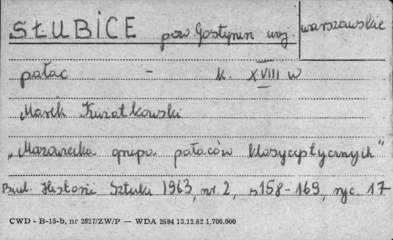 SŁUBICE pow Gostynin woj. warszawskie
pałac - k. XVIII w
Marek Kwiatkowski
"Mazowiecka grupa pałaców klasycystycznych"
Biul. Historii Sztuki 1963, nr. 2, s 158-169, ryc. 17
CWD - B-15-b, nr 2817/ZW/P — WDA 2694 13.12.62 1,700,000